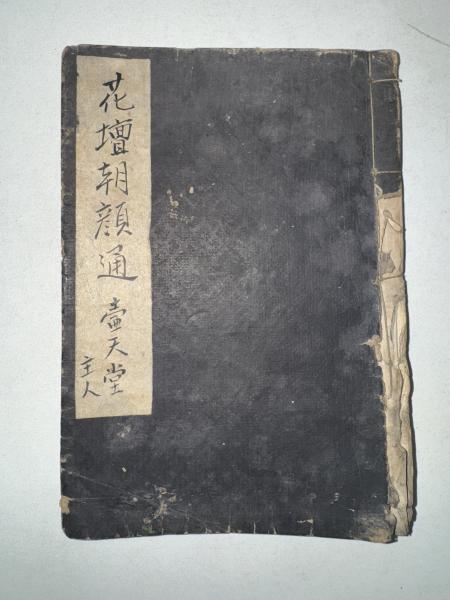 花壇朝顔通 壷天堂
主人